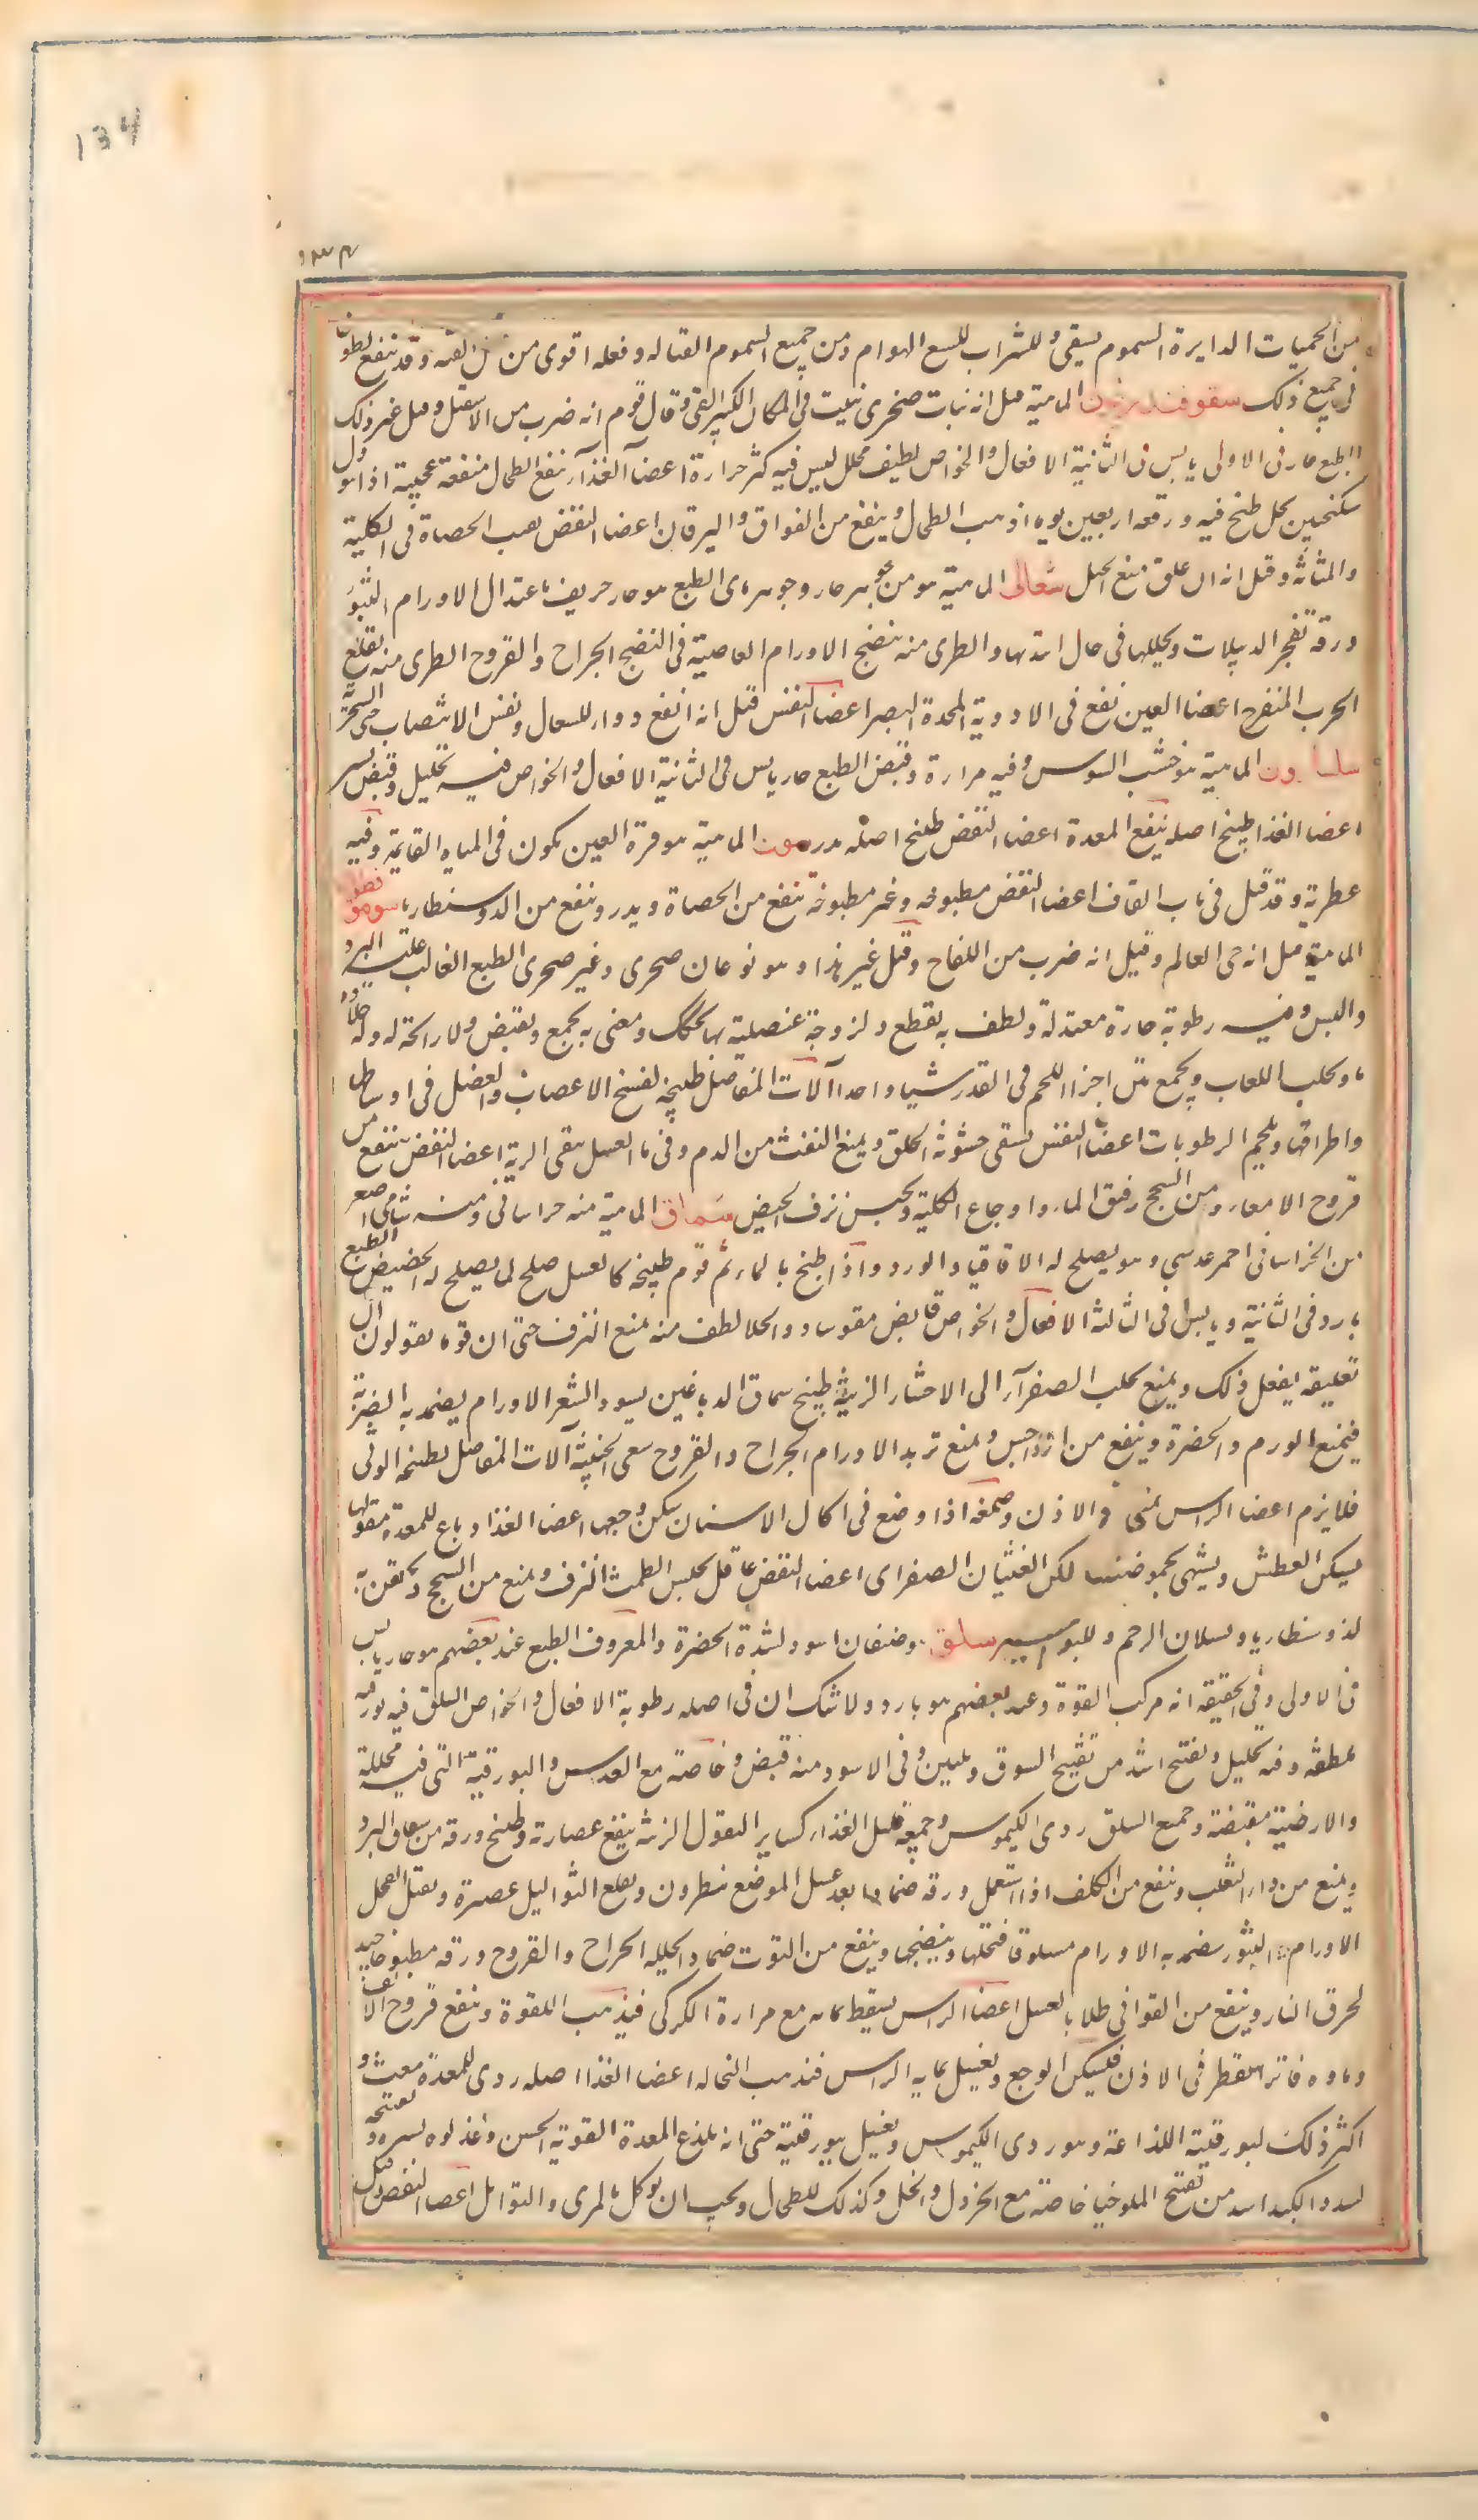 134
١٣٤
من الحميات الدايرة السموم يسقى للشراب للسع الهوام ومن جميع السموم القتاله وفعله اقوى من كل وقد ينفع
فى جميع ذلك سقوفندريون الماهية قيل انه نبات صخرى ينبت فى المكان الكثير وقال قوم انه ضرب من الاشقيل وقيل غير ذلك
الطبع حار فى الاولى يابس فى الثانية الافعال والخواص لطيف محلل ليس فيه كثير حرارة اعضآ الغذآ ينفع الطحال منفعة عجيبة اذا
سكنجبين بخل طبخ فيه ورقه اربعين يوما اذهب الطحال وينفع من الفواق واليرقان اعضا النفض يفتت الحصاة فى الكلية
والمثانة وقيل انه ان علق منع الحبل الماهية هو من جوهر حار وجوهر مائى الطبع هو حار حريف باعتدال الاورام البثور
ورقه تفجر الدبيلات ويحللها فى حال ابتدائها والطرى منه ينضج الاورام العاصية فى النضج الجراح والقروح الطرى منه يقلع
الجرب المتقرح اعضا العين نفع فى الادوية المحدة للبصر اعضا النفس قيل انه انفع دواء للسعال ونفس الانتصاب حتى
الماهية هو خشب السوس وفيه مرارة وقبض الطبع حار يابس فى الثانية الافعال والخواص فيه تحليل وقبض يسير
اعضا الغذا طبيخ اصله ينفع المعدة اعضا النفض طبيخ اصله يدر الماهية هو قرة العين يكون فى المياه القايمة وفيه
عطرية وقد قيل فى باب القاف اعضا النفض مطبوخه وغير مطبوخة تنفع من الحصاة ويدر وينفع من الدوسنطاريا
الماهية قيل انه حى العالم وقيل انه ضرب من اللفاح وقيل غير هذا وهو نوعان صخرى وغير صخرى الطبع الغالب عليه البرد
واليبس وفيه رطوبة حارة معتدلة ولطف به يقطع ولزوجة عنصلية بها ومعنى به يجمع ويقبض ولا رائحة له وله
ويجلب اللعاب ويجمع بين اجزا اللحم فى القدر شيا واحدا آلات المفاصل طبيخه لفسخ الاعصاب والعضل فى اوساطها
واطرافها ويلحم الرطوبات اعضا النفس يسقى خشونة الحلق ويمنع النفث من الدم وفى ماء العسل ينقى الرية اعضا النفض ينفع من
قروح الامعاء ومن السحج رفق الماء واوجاع الكلية ويحبس نزف الحيض سماق الماهية منه خراسانى ومنه شامى
من الخراسانى احمر عدسي وهو يصلح له الاقاقيا والورد واذا طبخ بالماء ثم قوم طبيخه كالعسل صلح لما يصلح له الحضيض الطبع
بارد فى الثانية ويابس فى الثالثة الافعال والخواص قابض مقو والخل الطف منه يمنع النزف حتى ان قوما يقولون ان
تعليقه يفعل ذلك ويمنع تحلب الصفرآء الى الاحشاء الزينة طبيخ سماق الدباغين يسود الشعر الاورام يضمد به الضربة
فيمنع الورم والخضرة وينفع من الداحس ويمنع تزيد الاورام الجراح والقروح الخبيثة آلات المفاصل بطبيخه الوثى
فلا يرم اعضا الراس يمنع الاذن وصمغه اذا وضع فى اكال الاسنان يسكن وجعها اعضا الغذا دباغ للمعدة مقولها
يسكن العطش ويشهى بحموضته يسكن الغثيان الصفراى اعضا النفض عاقل يحبس الطمث النزف ويمنع من السحج ويحقن به
لدوسنطاريا وسيلان الرحم وللبواسير سلق هو صنفان اسود لشدة الخضرة والمعروف الطبع عند بعضهم هو حار يابس
فى الاولى وفى الحقيقة انه مركب القوة وعند بعضهم هو بارد ولا شك ان فى اصله رطوبة الافعال والخواص السلق فيه بورقيه
ملطفة وفيه تحليل وتفتح اشد من تفتيح السوق وتليين وفى الاسود منه قبض وخاصة مع العدس والبورقية التى فيه محللة
والارضية مقبضة وجميع السلق ردى الكيموس وجميعه قليل الغذاء كساير البقول الزينة ينفع عصارته وطبيخ ورقه من شقاق البرد
ويمنع من داء الثعلب وينفع من الكلف اذا استعمل ورقه ضمادا بعد غسل الموضع بنطرون ويقلع الثواليل عصيره ويقتل القمل
الاورام والبثور يضمد به الاورام مسلوقا فيحللها وينضجها وينفع من التوث ضمادا بخليله الجراح والقروح ورقه مطبوخا جيد
لحرق النار وينفع من القوابى طلا بالعسل اعضا الراس يسقط بمائه مع مرارة الكركى فيذهب اللقوة وينفع قروح الانف
وماوه فاترا يقطر فى الاذن فيسكن الوجع ويغسل بمايه الراس فتذهب النخاله اعضا الغذا اصله ردى للمعدة مغث و
اكثر ذلك لبورقيته اللذاعة وهو ردى الكيموس ويغسل ببورقيته حتى انه يلذع المعدة القوية الحس وغذاوه يسير
لسدد الكبد اشد من تفتيح الملوخيا خاصة مع الخردل والخل وكذلك للطحال ويجب ان يوكل بالمرى والتوابل اعضا النفض